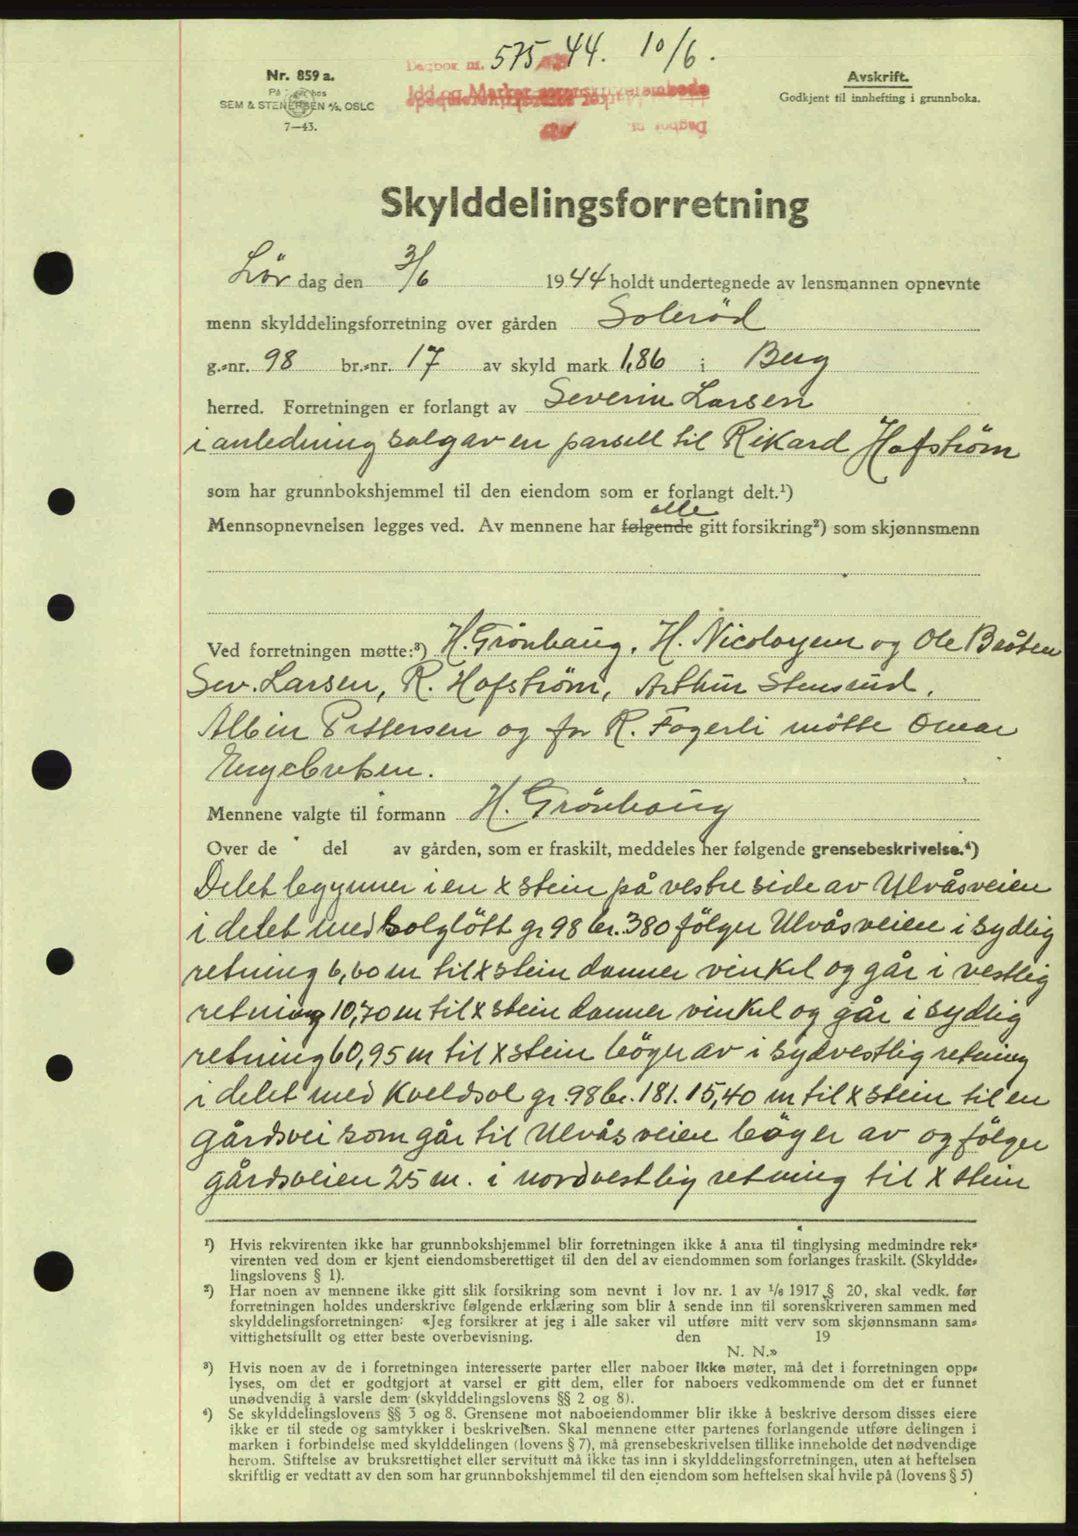 575 44. 10/6.
Dagbok nr.
Nr. 859 a.
Avskrift.
SEM & STENERSEN A/S, OSLO
Godkjent til innhefting i grunnboka.
7—43.
Skylddelingsforretning
Lör dag den 3/6 1944 holdt undertegnede av lensmannen opnevnte
menn skylddelingsforretning over gården Solerød
g.-nr. 98 br.-nr. 17 av skyld mark 1,86 i Berg
herred. Forretningen er forlangt av Severin Larsen
i anledning salg av en parsell til Rikard Hafstrøm
som har grunnbokshjemmel til den eiendom som er forlangt delt.¹)
alle
Mennsopnevnelsen legges ved. Av mennene har følgende gitt forsikring²) som skjønnsmenn
Ved forretningen møtte:³) H. Grönhaug, H. Nicolaysen og Ole Bråten
Sev. Larsen, R. Hafstrøm, Arthur Stensrud,
Albin Pettersen og for R. Fagerli møtte Omar
Engebretsen.
Mennene valgte til formann H. Grönhaug
Over de del av gården, som er fraskilt, meddeles her følgende grensebeskrivelse.⁴)
Delet begynner i en x stein på vestre side av Ulvåsveien
i delet med Solgløtt gr 98 br. 380 följer Ulvåsveien i sydlig
retning 6,60 m til x stein danner vinkel og går i vestlig
retning 10,70 m til x stein danner vinkel og går i sydlig
retning 60,95 m til x stein böyer av i sydvestlig retning
i delet med Kveldsol gr. 98 br. 181. 15,40 m til x stein til en
gårdsvei som går til Ulvåsveien böyer av og fölger
gårdsveien 25 m. i nordvestlig retning til x stein
¹) Hvis rekvirenten ikke har grunnbokshjemmel blir forretningen ikke å anta til tinglysing medmindre rek-
virenten ved dom er kjent eiendomsberettiget til den del av eiendommen som forlanges fraskilt. (Skyldde-
lingslovens § 1).
²) Har noen av mennene ikke gitt slik forsikring som nevnt i lov nr. 1 av 1/6 1917 § 20, skal vedk. før
forretningen holdes underskrive følgende erklæring som blir å sende inn til sorenskriveren sammen med
skylddelingsforretningen: «Jeg forsikrer at jeg i alle saker vil utføre mitt verv som skjønnsmann sam-
vittighetsfullt og etter beste overbevisning. den 19
N. N.»
³) Hvis noen av de i forretningen interesserte parter eller naboer ikke møter, må det i forretningen opp-
lyses, om det er godtgjort at varsel er gitt dem, eller for naboers vedkommende om det er funnet
unødvendig å varsle dem (skylddelingslovens §§ 2 og 8).
⁴) Se skylddelingslovens §§ 3 og 8. Grensene mot naboeiendommer blir ikke å beskrive dersom disses eiere
ikke er til stede og samtykker i beskrivelsen. Skal mennene etter partenes forlangende utføre delingen i
marken i forbindelse med skylddelingen (lovens § 7), må grensebeskrivelsen tillike inneholde det nødvendige
herom. Stiftelse av bruksrettighet eller servitutt må ikke tas inn i skylddelingsforretningen, uten at heftelsen
skriftlig er vedtatt av den som har grunnbokshjemmel til den eiendom som heftelsen skal hvile på (lovens § 5)